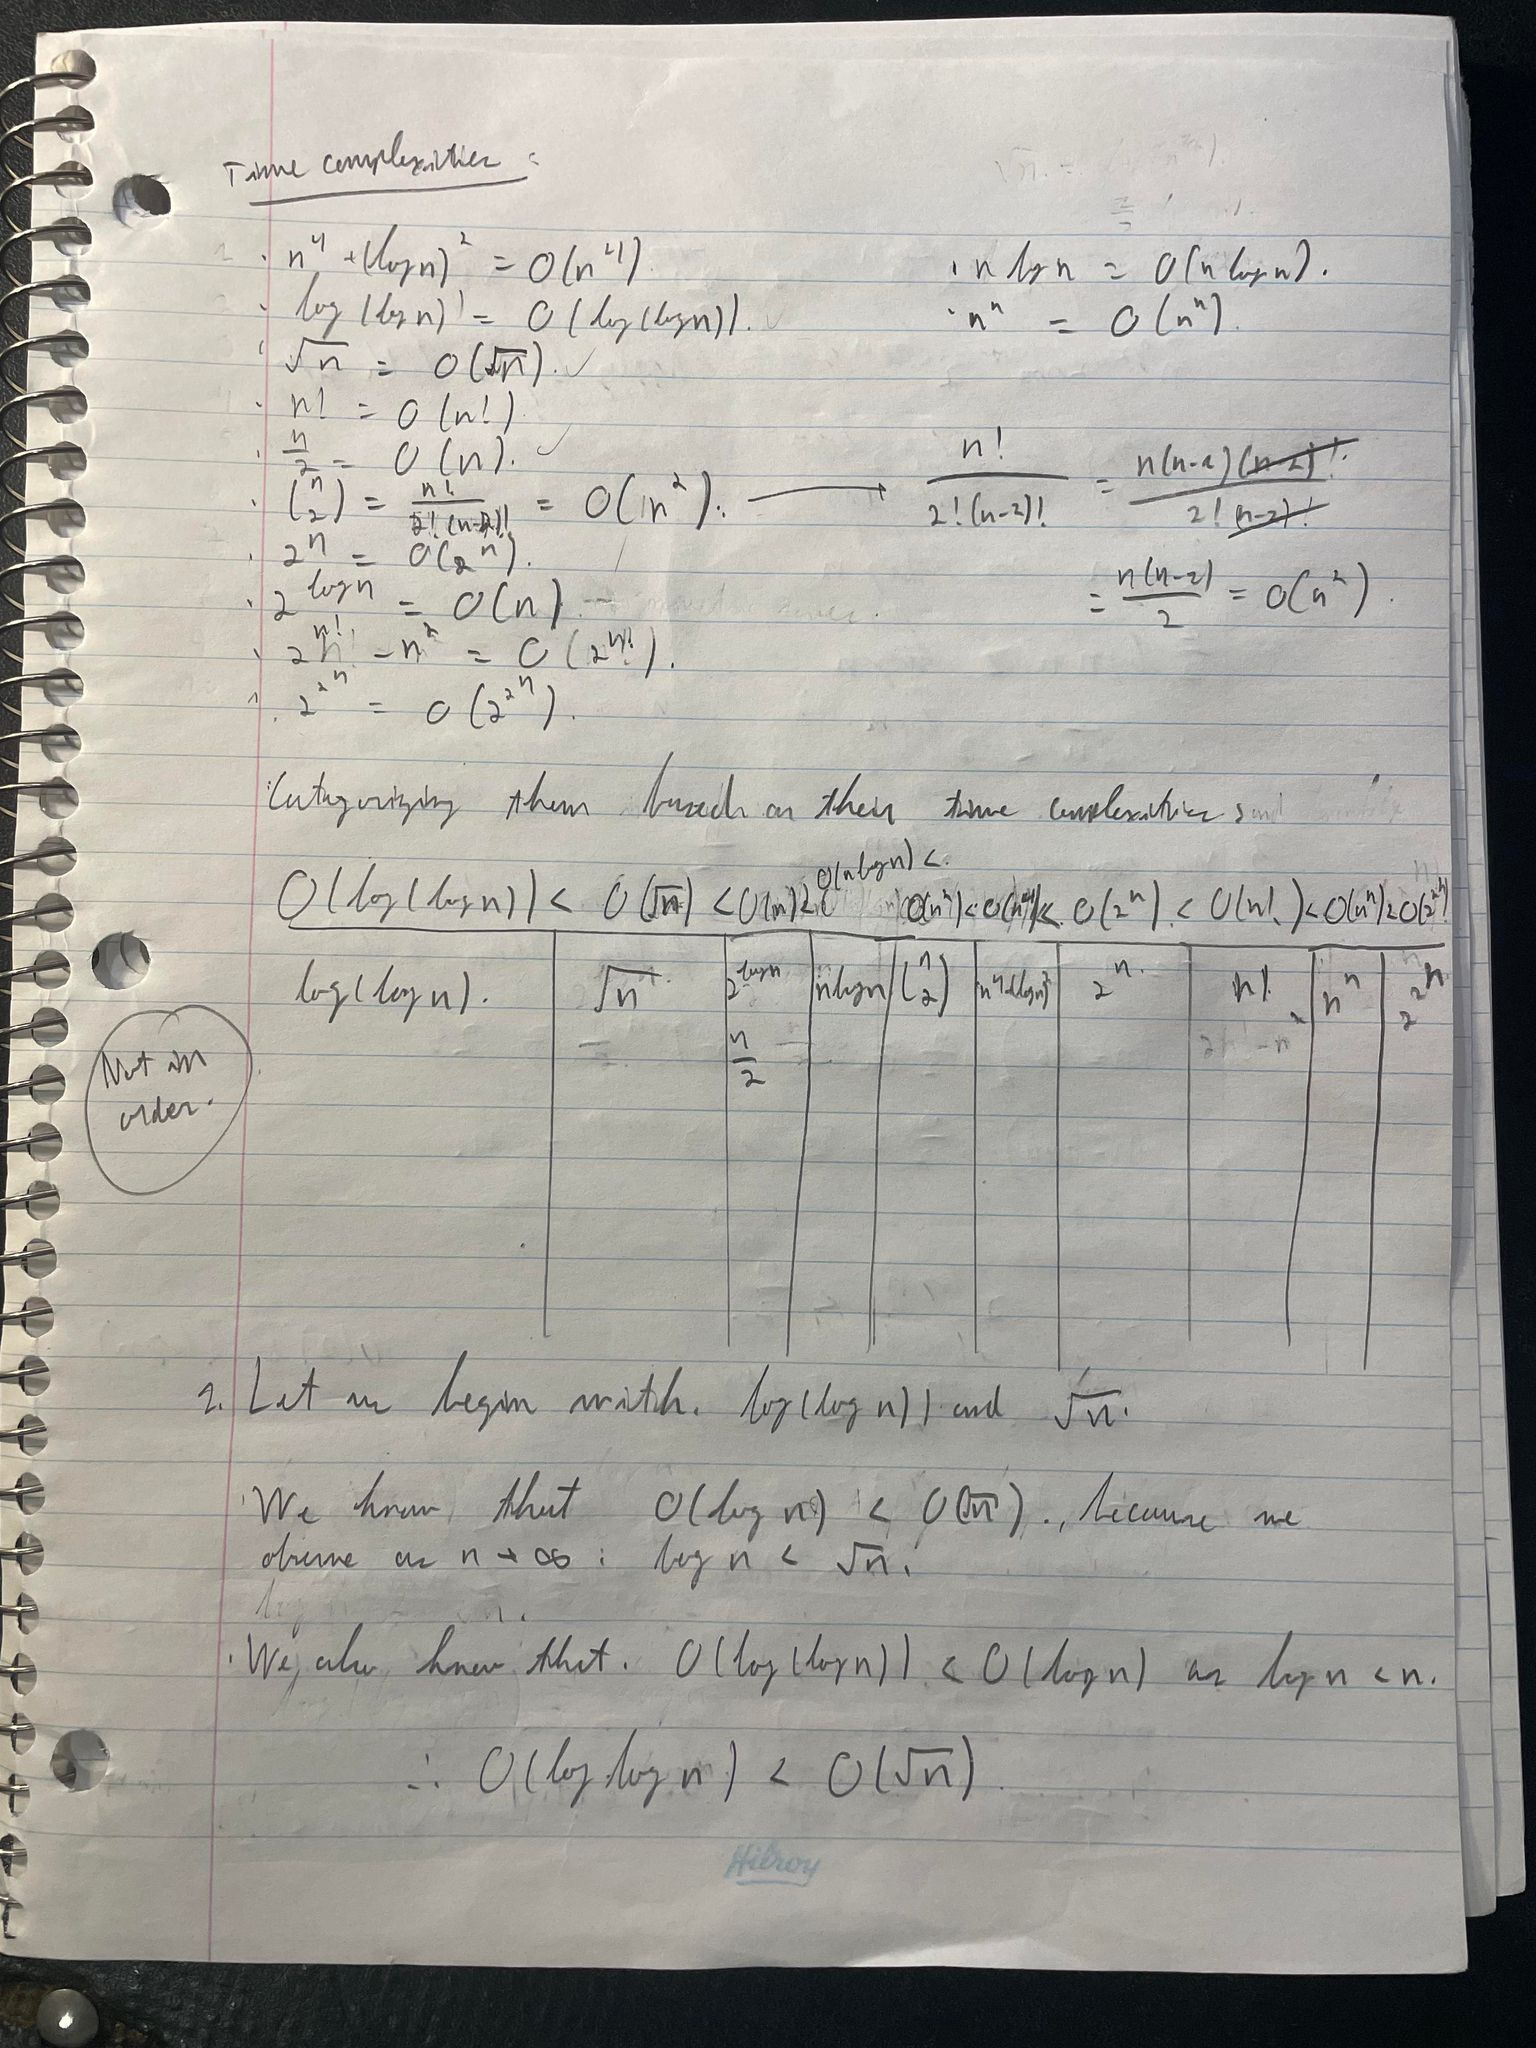 Time complexities:
· n^4 + (log n)^2 = O(n^4)
· n log n = O(n log n).
· log(log n) = O(log(log n)).
· n^n = O(n^n).
· √n = O(√n). ✓
· n! = O(n!)
· n/2 = O(n). ✓
· (n 2) = n!/(2!(n-2)!) = O(n^2). → n!/(2!(n-2)!) = n(n-2)(n-2)!/(2!(n-2)!)
· 2^n = O(2^n).
= n(n-2)/2 = O(n^2).
· 2^(log n) = O(n)
· 2^(n!) - n^2 = O(2^(n!)).
· 2^(2^n) = O(2^(2^n)).
Categorizing them based on their time complexities
O(log(log n)) < O(√n) < O(n) < O(n log n) < O(n^2) < O(n^4) < O(2^n) < O(n!) < O(n^n) < O(2^(2^n))
log(log n). √n 2^(log n) n log n (n 2) n^4+(log n)^2 2^n. n! n^n 2^(2^n)
n/2
Not in
order.
2. Let us begin with. log(log n)) and √n.
We know that O(log n) < O(√n)., because we
observe as n → ∞ : log n < √n.
· We also know that. O(log(log n)) < O(log n) as log n < n.
∴ O(log log n) < O(√n).
Hilroy